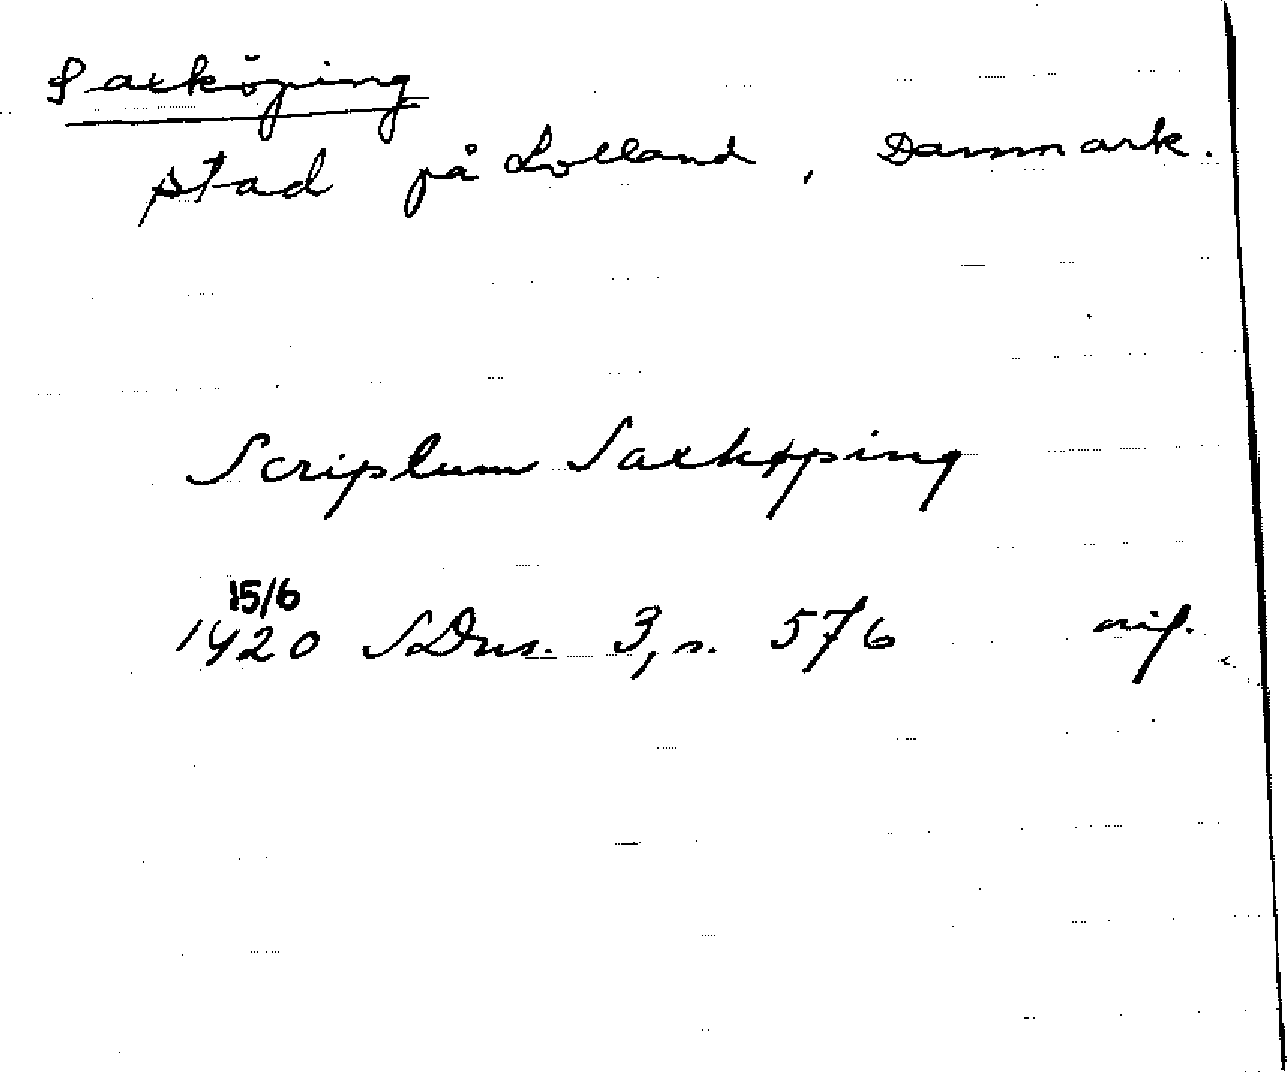 Saxköping
stad på Lolland, Danmark.
Scriptum Saxkøping
15/6
1420 SDns. 3, s. 576 orig.